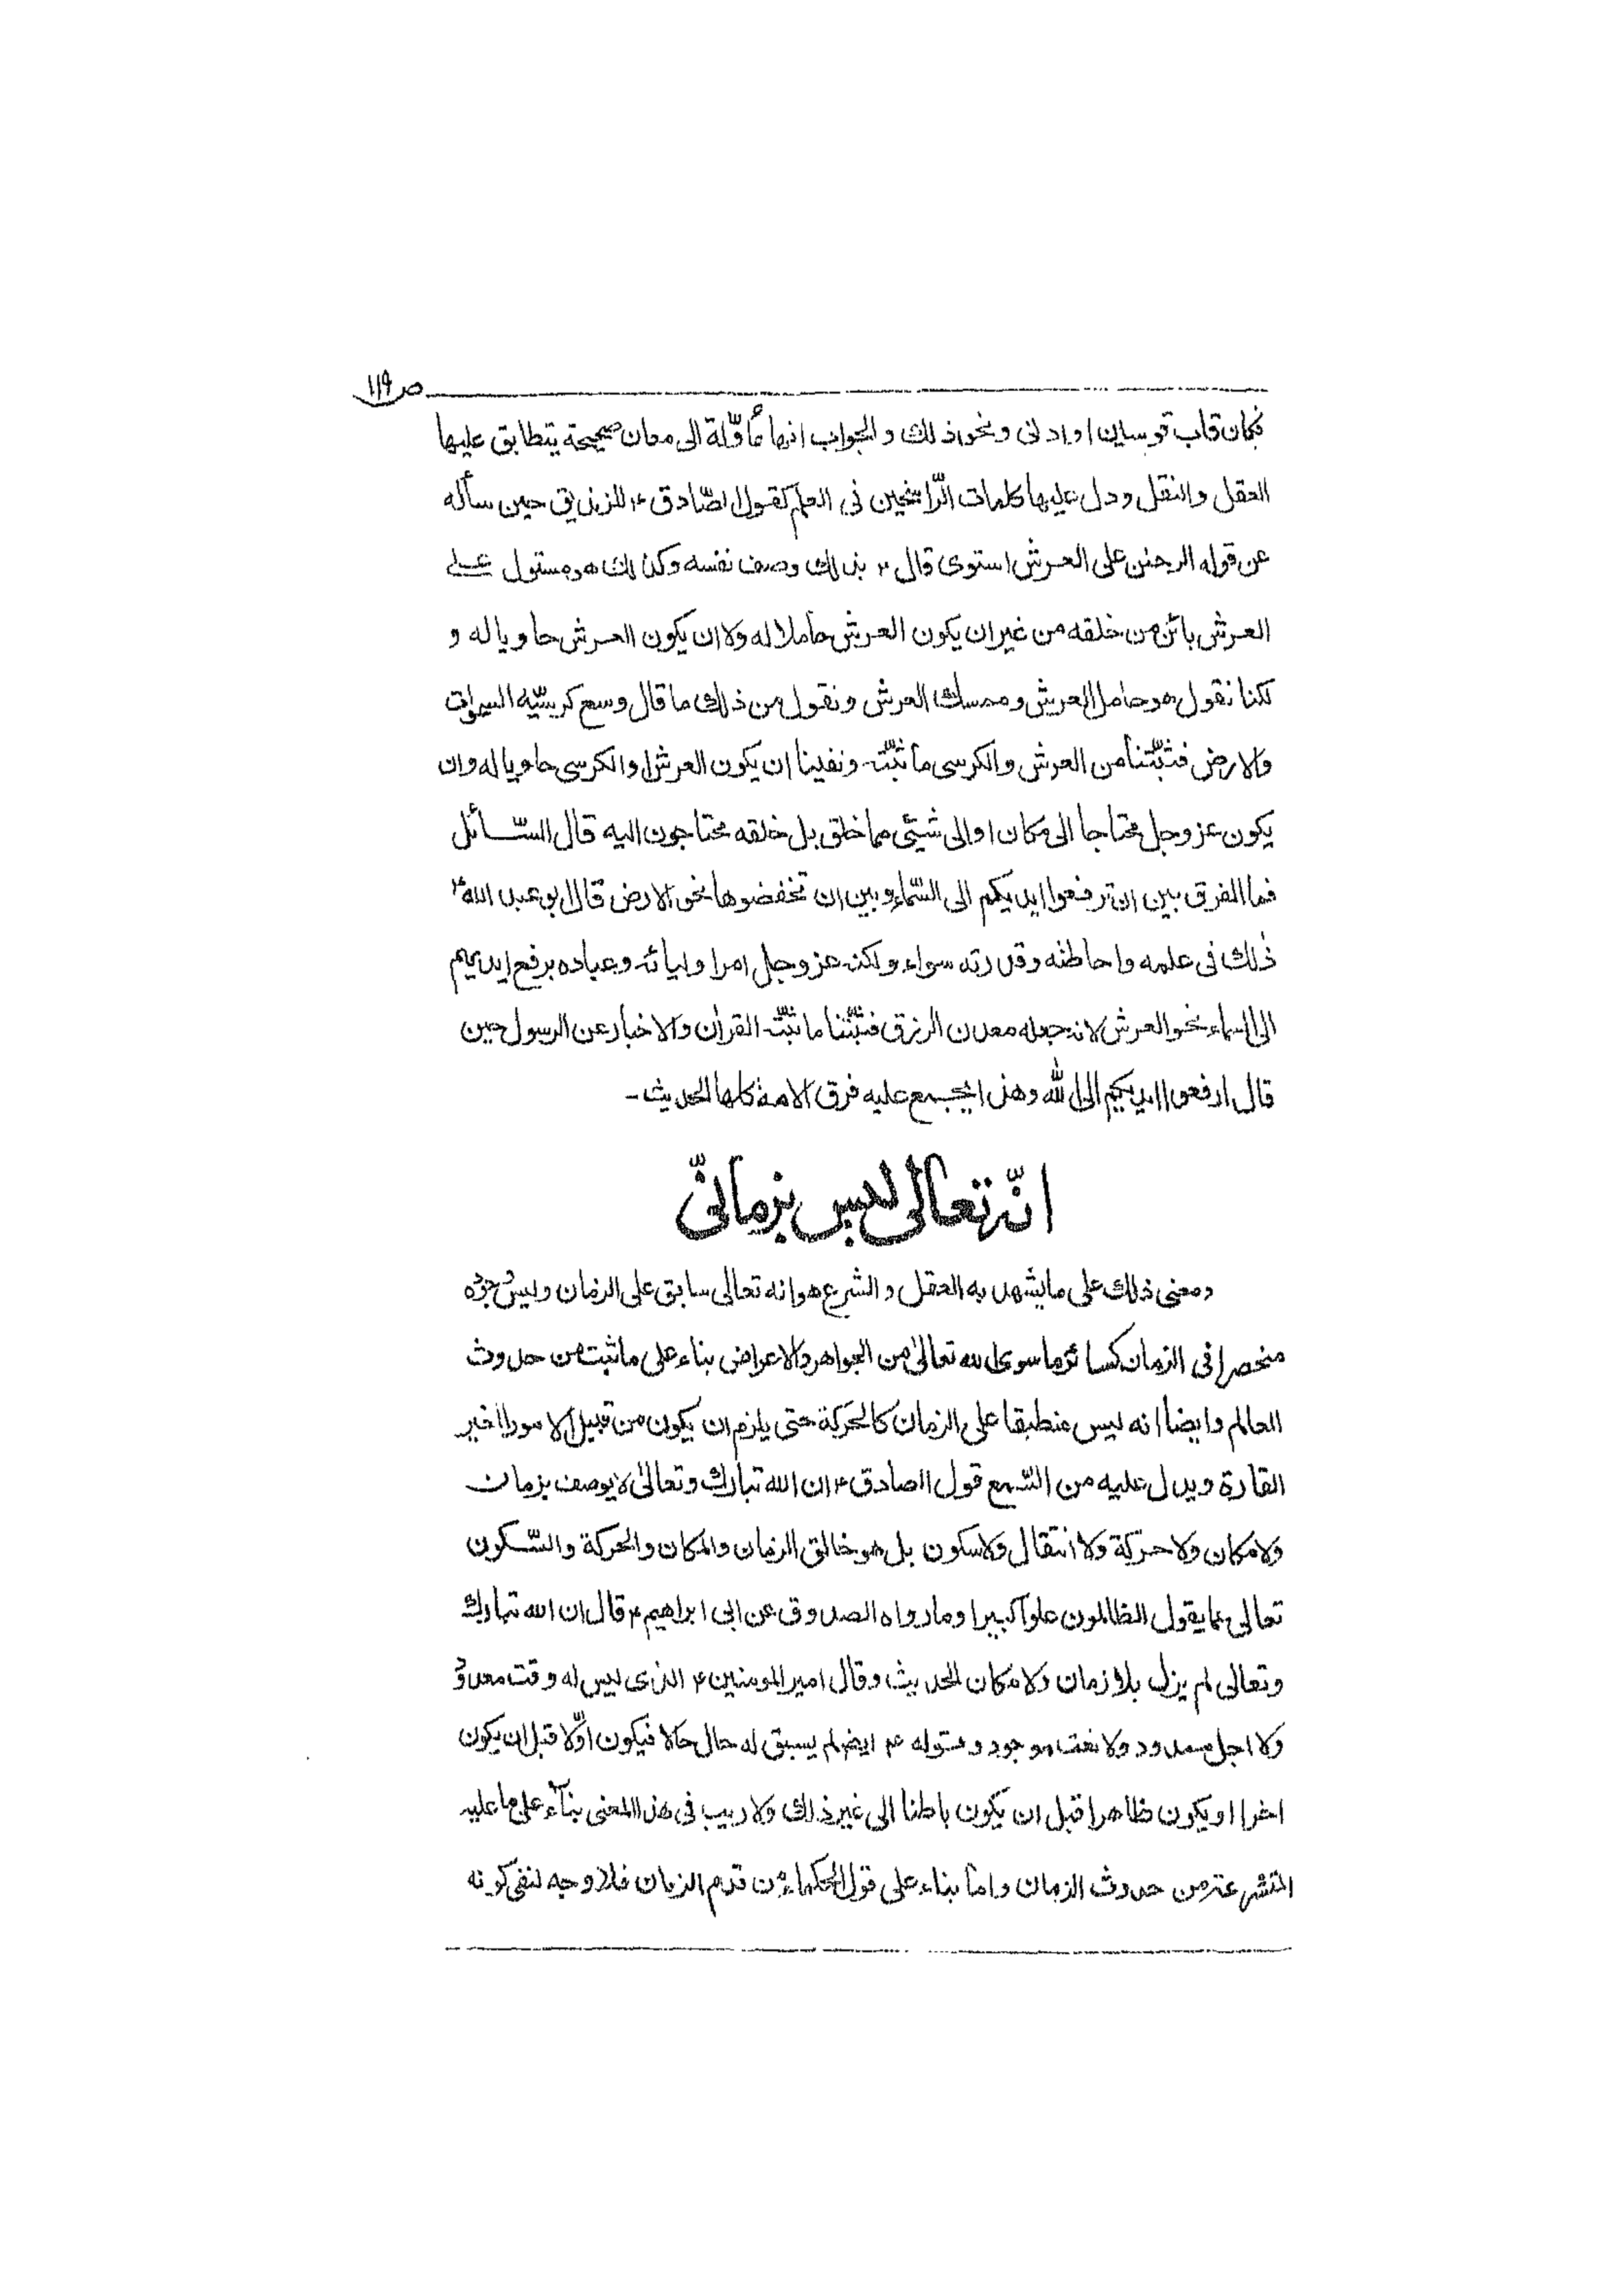 ص ۱۱۹
فكان قاب قوسين او ادنى ونحو ذلك والجواب انها مأوّلة الى معان صحيحة يتطابق عليها
العقل والنقل ودل عليها كلمات الرّاسخين في العلم كقول الصّادق ۴ للزنديق حين سأله
عن قوله الرحمن على العرش استوى قال ۴ بذلك وصف نفسه وكذلك هو مستول على
العرش بائن من خلقه من غير ان يكون العرش حاملا له ولا ان يكون العرش حاويا له و
لكنا نقول هو حامل العرش وممسك العرش ونقول من ذلك ما قال وسع كرسيّه السموات
والارض فثبّتنا من العرش والكرسى ما ثبّته ونفينا ان يكون العرش او الكرسى حاويا له وان
يكون عز وجل محتاجا الى مكان او الى شيئى مما خلق بل خلقه محتاجون اليه قال السّائل
فما الفرق بين ان ترفعوا ايديكم الى السّماء وبين ان تخفضوها نحو الارض قال ابو عبد الله ۴
ذلك فى علمه واحاطته وقدرته سواء ولكنه عز وجل امر اوليائه وعباده برفع ايديهم
الى السماء نحو العرش لانه جعله معدن الرزق فثبّتنا ما ثبّته القران والاخبار عن الرسول حين
قال ارفعوا ايديكم الى الله وهذا يجمع عليه فرق الامة كلها الحديث -
انّه تعالى ليس بزمانىّ
ومعنى ذلك على ما يشهد به العقل والشرع هو انه تعالى سابق على الزمان وليس وجوده
منحصرا فى الزمان كسائر ما سوى الله تعالى من الجواهر والاعراض بناء على ما ثبت من حدوث
العالم وايضا انه ليس منطبقا على الزمان كالحركة حتى يلزم ان يكون من قبيل الامور الغير
القارة ويدل عليه من السّمع قول الصادق ۴ ان الله تبارك وتعالى لا يوصف بزمان
ولا مكان ولا حركة ولا انتقال ولا سكون بل هو خالق الزمان والمكان والحركة والسّكون
تعالى عما يقول الظالمون علوّا كبيرا وما رواه الصدوق عن ابى ابراهيم ۴ قال ان الله تبارك
وتعالى لم يزل بلا زمان ولا مكان الحديث وقال امير المومنين ۴ الذى ليس له وقت معدود
ولا اجل ممدود ولا نعت موجود وقوله ۴ ايضا لم يسبق له حال حالا فيكون اوّلا قبل ان يكون
اخرا او يكون ظاهرا قبل ان يكون باطنا الى غير ذلك ولا ريب فى هذا المعنى بناء على ما عليه
المتشرعة من حدوث الزمان واما بناء على قول الحكماء من قدم الزمان فلا وجه لنفى كونه